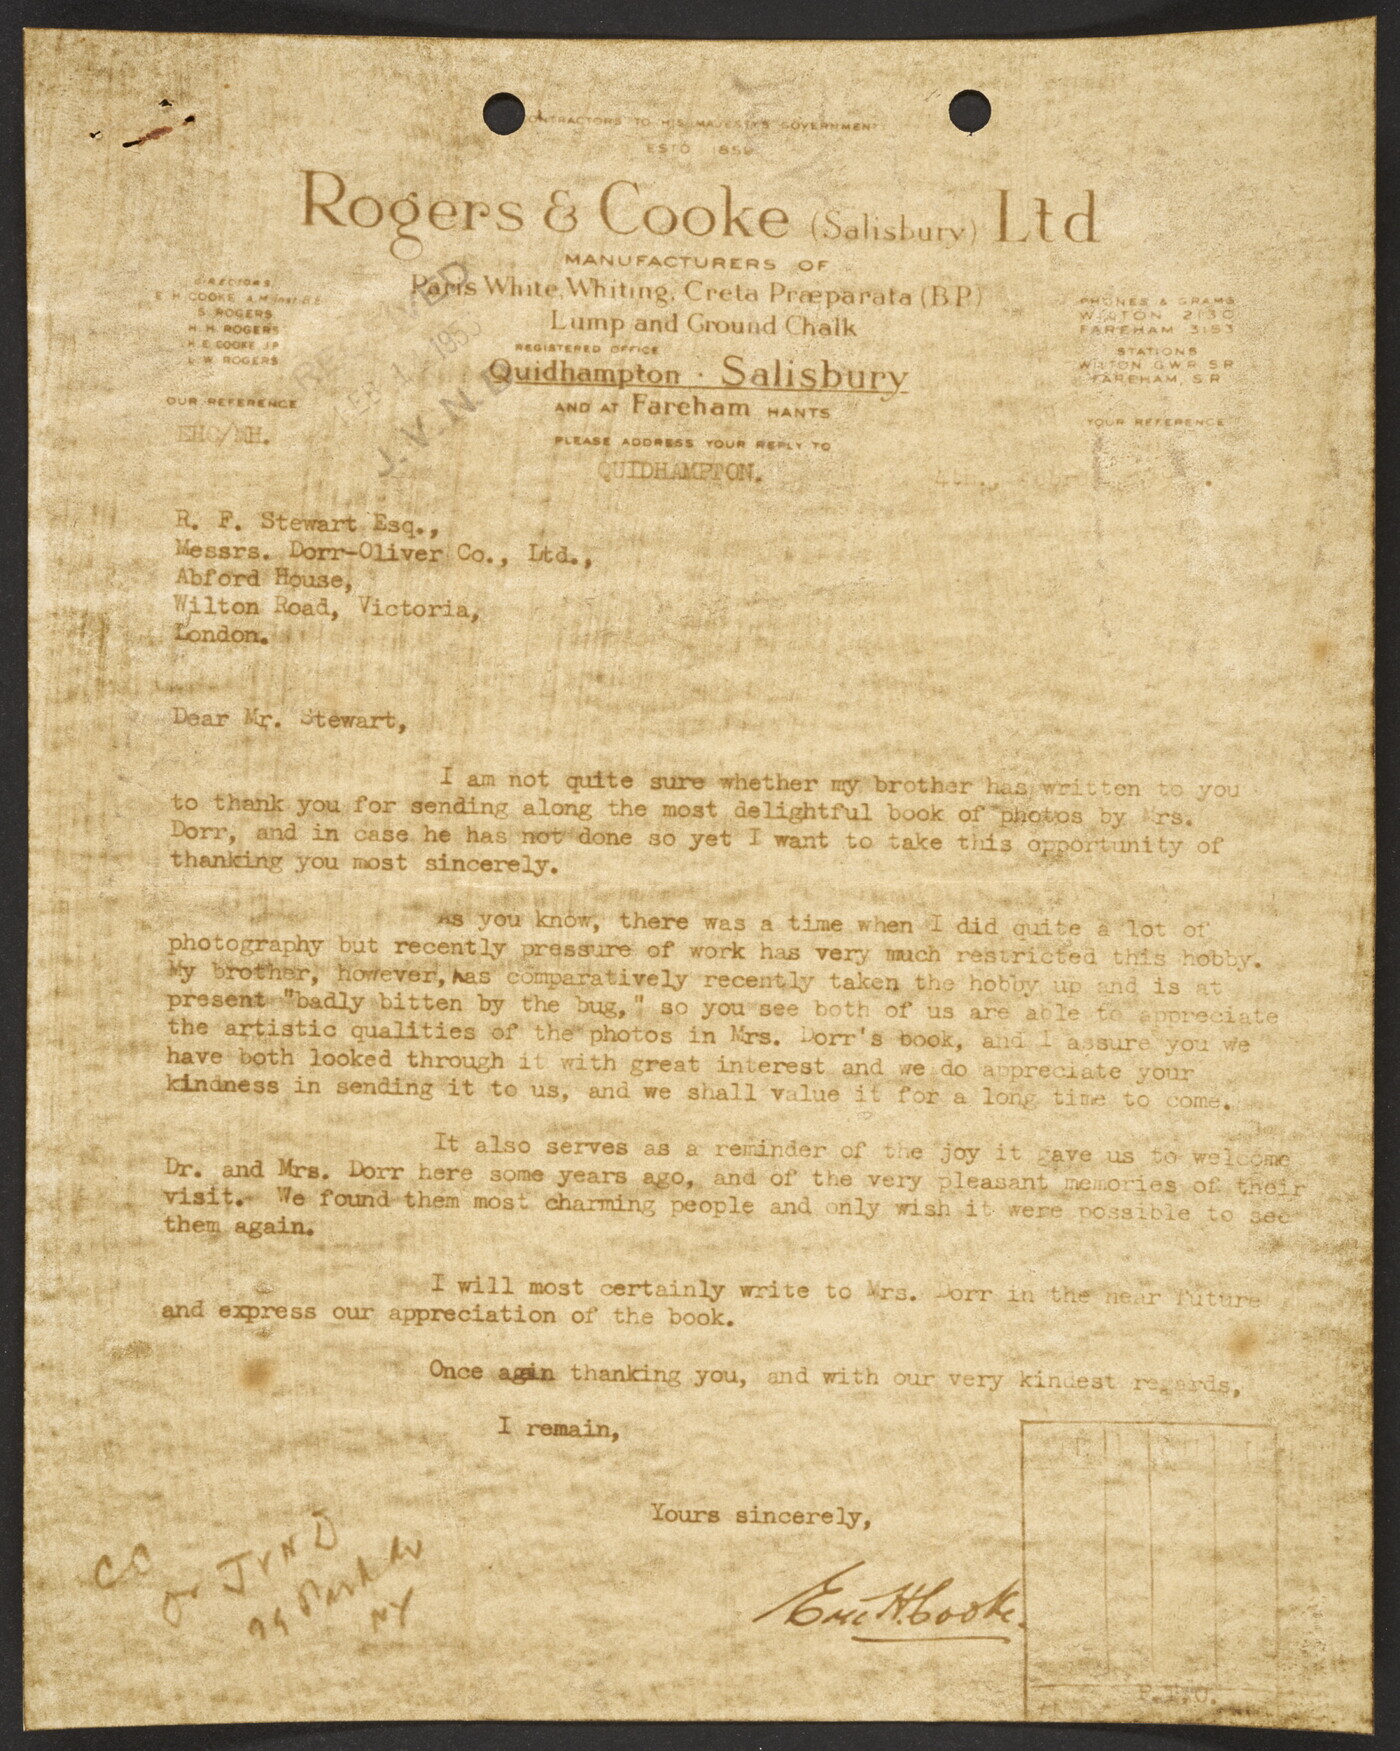 CONTRACTORS TO HIS MAJESTY'S GOVERNMENT
ESTD 1859
Rogers & Cooke (Salisbury) Ltd
MANUFACTURERS OF
Paris White, Whiting, Creta Præparata (B.P.)
Lump and Ground Chalk
REGISTERED OFFICE
Quidhampton · Salisbury
AND AT Fareham HANTS
PLEASE ADDRESS YOUR REPLY TO
QUIDHAMPTON.
DIRECTORS
E. H. COOKE A.M.Inst.B.E.
S. ROGERS
H. H. ROGERS
H. E. COOKE J.P.
L. W. ROGERS
OUR REFERENCE
EHC/NH.
PHONES & GRAMS
WILTON 2130
FAREHAM 3153
STATIONS
WILTON G.W.R S.R
FAREHAM, S.R
YOUR REFERENCE
J.V.N.D
R. F. Stewart Esq.,
Messrs. Dorr-Oliver Co., Ltd.,
Abford House,
Wilton Road, Victoria,
London.
Dear Mr. Stewart,
I am not quite sure whether my brother has written to you
to thank you for sending along the most delightful book of photos by Mrs.
Dorr, and in case he has not done so yet I want to take this opportunity of
thanking you most sincerely.
As you know, there was a time when I did quite a lot of
photography but recently pressure of work has very much restricted this hobby.
My brother, however, has comparatively recently taken the hobby up and is at
present "badly bitten by the bug," so you see both of us are able to appreciate
the artistic qualities of the photos in Mrs. Dorr's book, and I assure you we
have both looked through it with great interest and we do appreciate your
kindness in sending it to us, and we shall value it for a long time to come.
It also serves as a reminder of the joy it gave us to welcome
Dr. and Mrs. Dorr here some years ago, and of the very pleasant memories of their
visit. We found them most charming people and only wish it were possible to see
them again.
I will most certainly write to Mrs. Dorr in the near future
and express our appreciation of the book.
Once again thanking you, and with our very kindest regards,
I remain,
Yours sincerely,
Eric H. Cooke.
CC
Dr JVND
99 Park Av
NY
P.T.O.